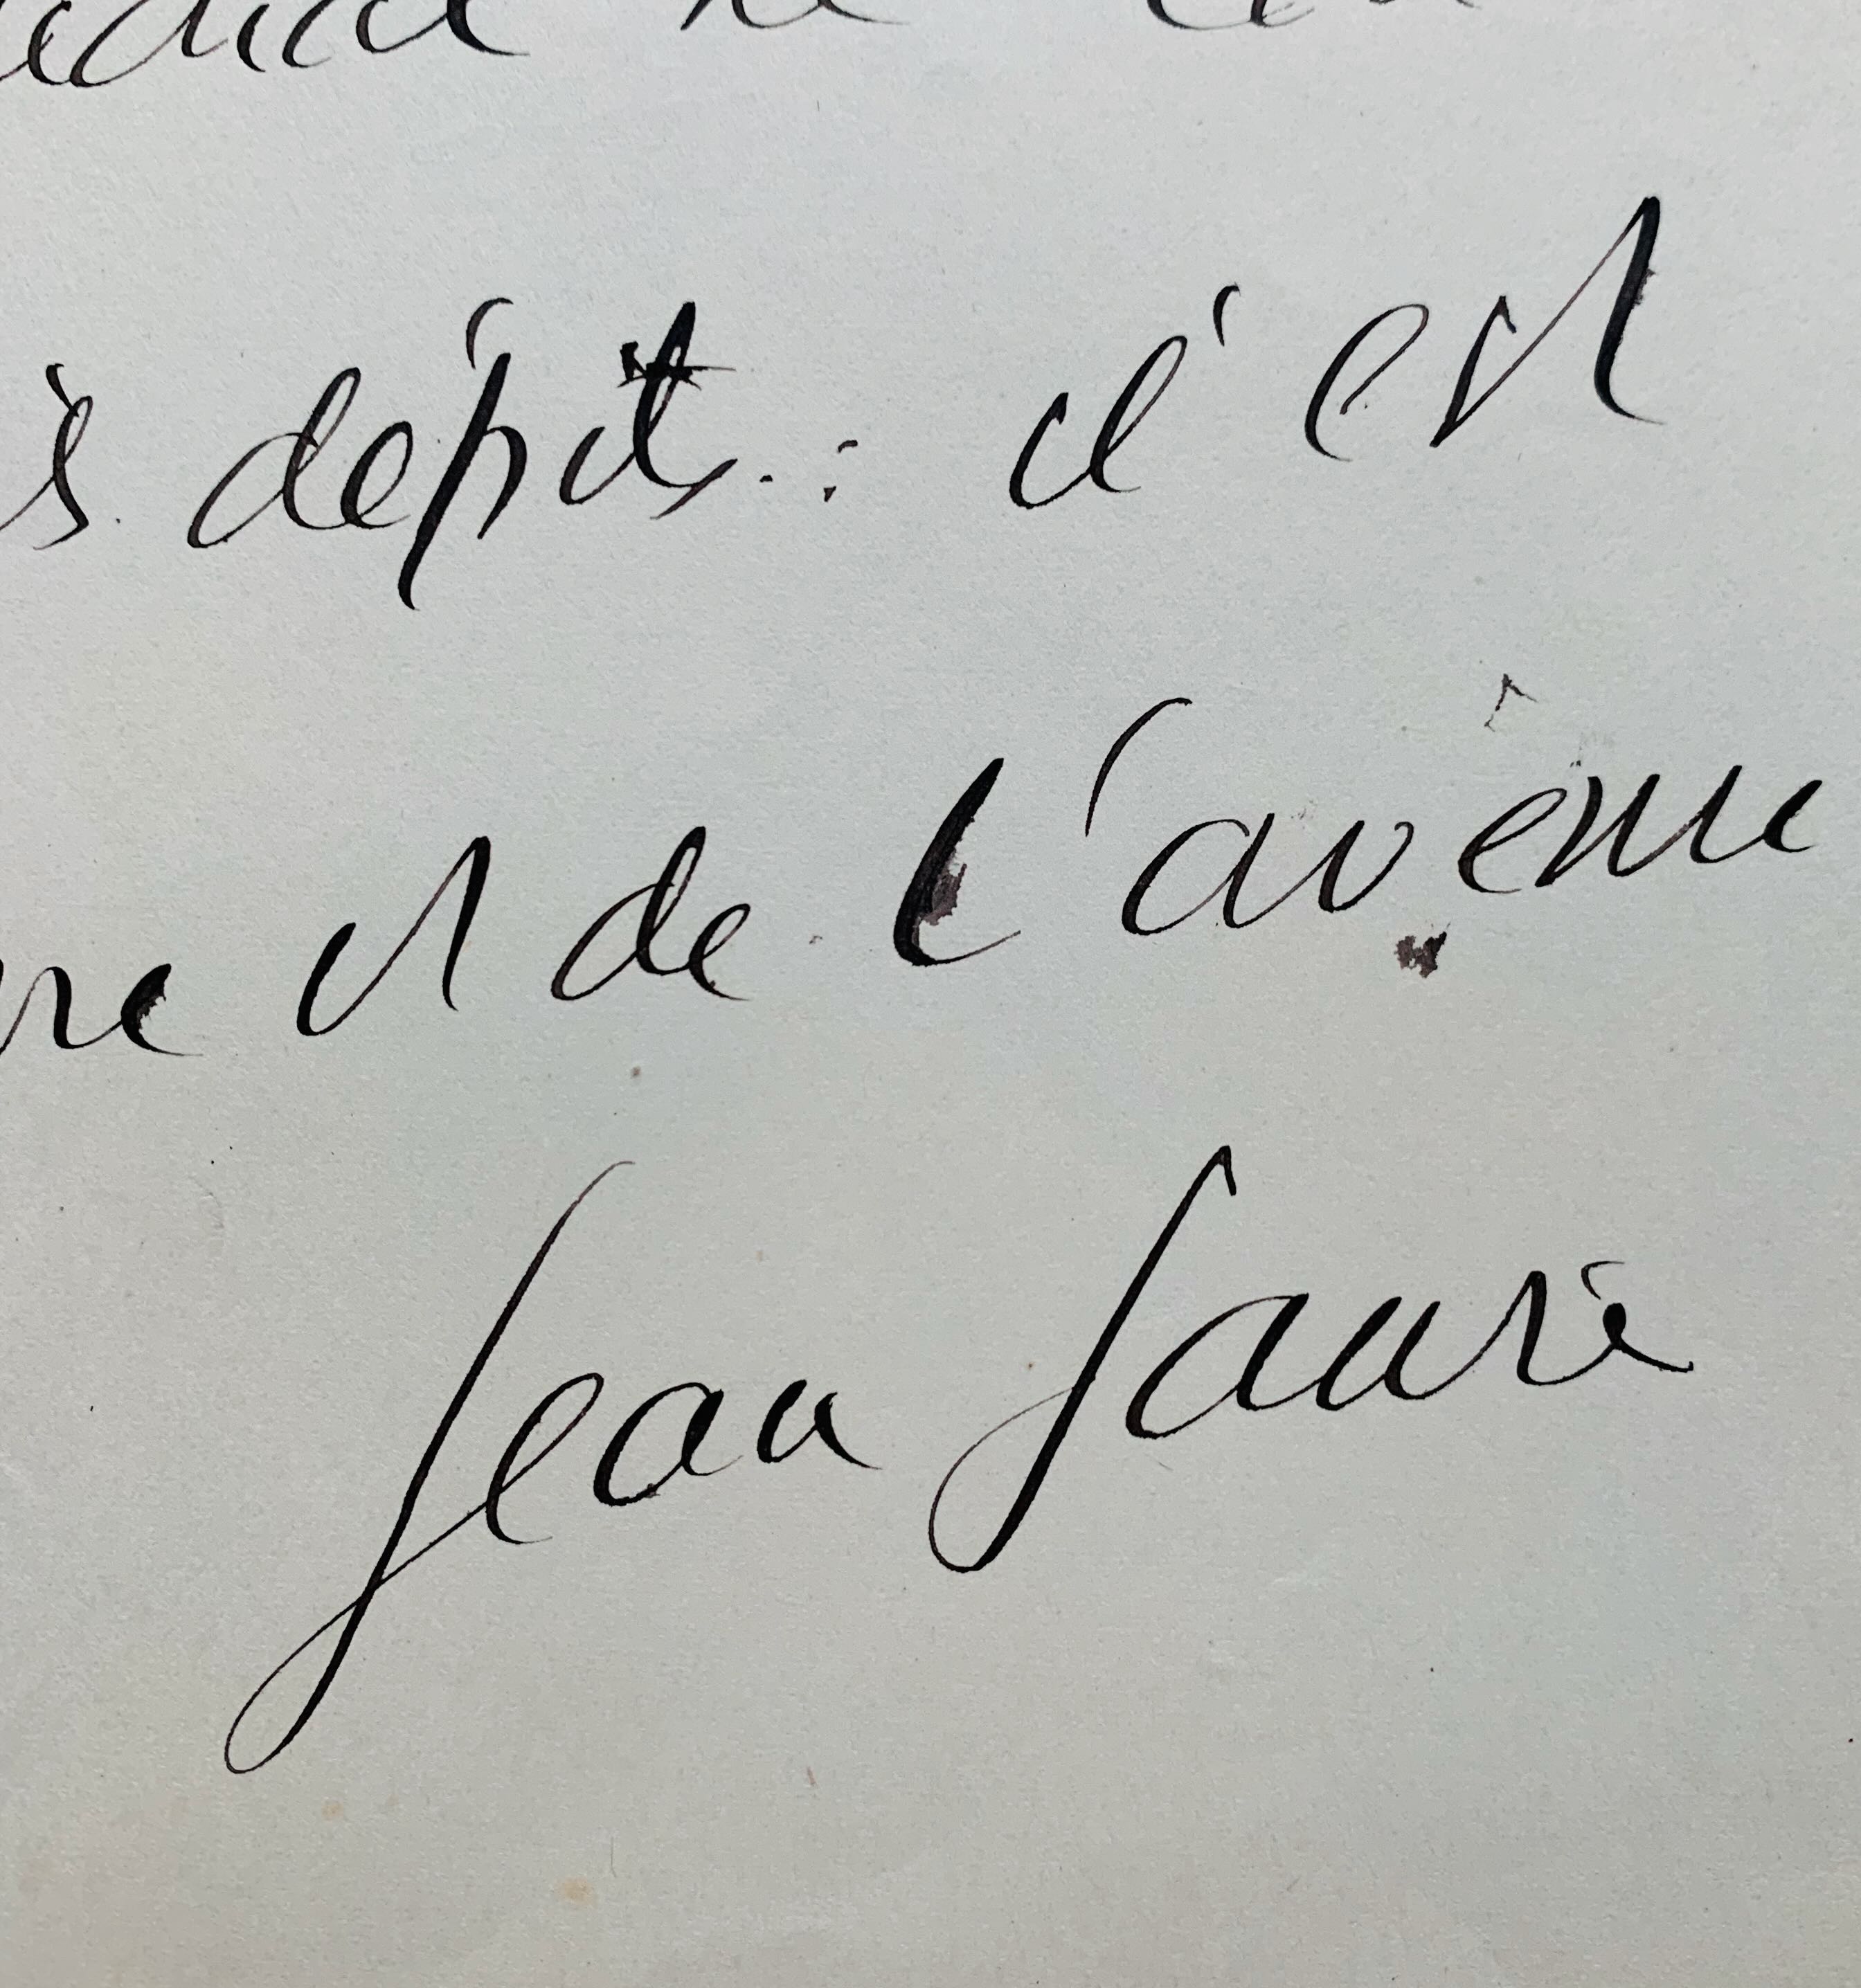 dépits : il est
et de l'avenir
Jean Jaurès